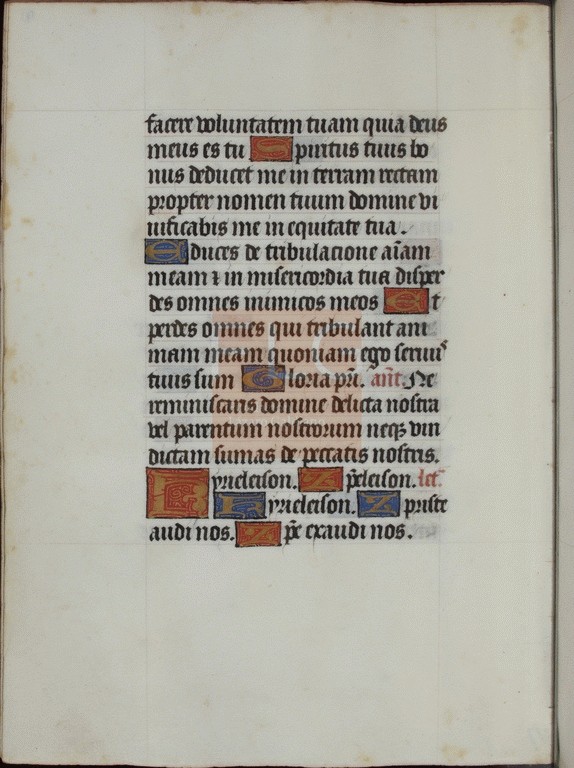 facere voluntatem tuam quia deus
meus es tu Spiritus tuus bo
nus deducet me in terram rectam
propter nomen tuum domine vi
vificabis me in equitate tua.
Educes de tribulacione aīam
meam ⁊ in misericordia tua disper
des omnes inimicos meos Et
perdes omnes qui tribulant ani
mam meam quoniam ego servus
tuus sum Gloria pr̄i. añt. Ne
reminiscaris domine delicta nostra
vel parentum nostrorum neqz vin
dictam sumas de peccatis nostris.
Kyrieleison. Xp̄eleison. let̄.
Kyrieleison. Xpriste
audi nos. Xp̄e exaudi nos.